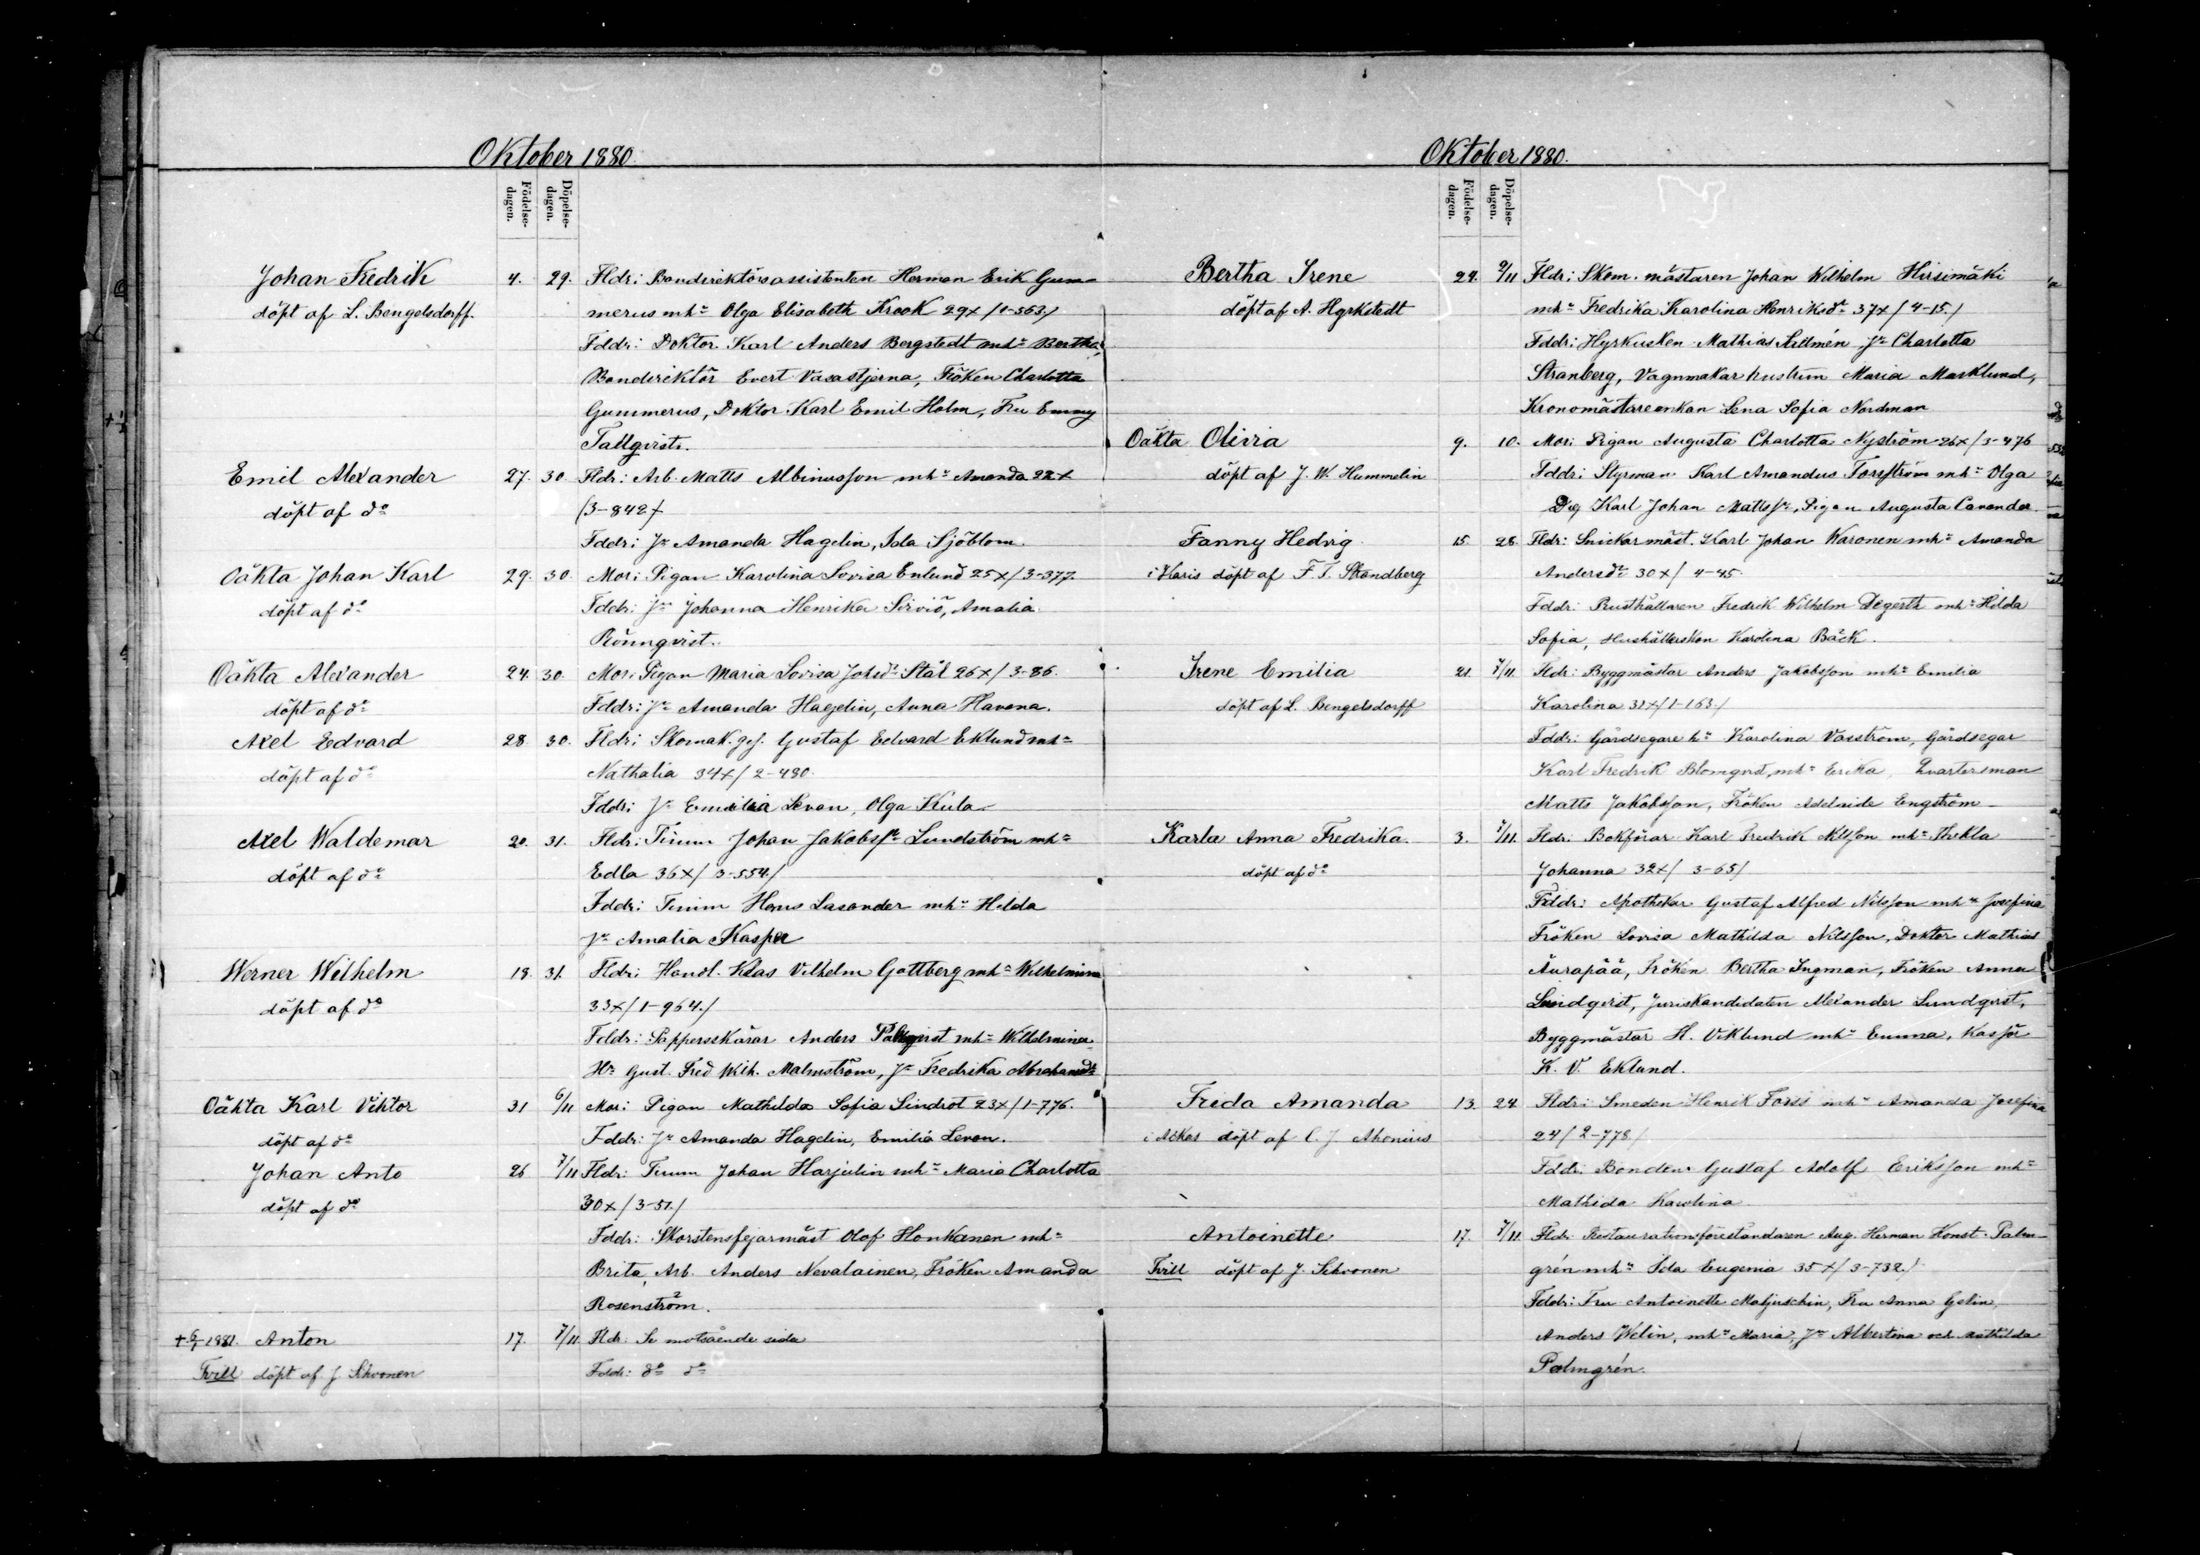 Oktober 1880.
Födelse-
dagen.
Döpelse-
dagen.
Johan Fredrik 4. 29. Fldr: Bandirektörsassistenten Herman Erik Gum-
döpt af L. Bengelsdorff. merus mh: Olga Elisabeth Krook 29x/1-563/
Fddr: Doktor Karl Anders Bergstedt mh: Bertha,
Bandirektör Evert Vasastjerna, Fröken Charlotta
Gummerus, Doktor Karl Emil Holm, Fru Emmy
Tallqvist.
Emil Alexander 27. 30. Fldr: Arb. Matts Albinusson mh: Amanda 22x
döpt af do /3-842/
Fddr: Jn Amanda Hagelin, Ida Sjöblom.
Oäkta Johan Karl 29. 30. Mor: Pigan Karolina Lovisa Enlund 25x/3-377.
döpt af do Fddr: Jn Johanna Henrika Sirviö, Amalia
Rönnqvist.
Oäkta Alexander 24. 30. Mor: Pigan Maria Lovisa Johsdr Stål 26x/3-86.
döpt af do Fddr: Jn Amanda Hagelin, Anna Havena.
Axel Edvard 28. 30. Fldr: Skomak. ges. Gustaf Edvard Eklund mh:
döpt af do Nathalia 34x/2-480.
Fddr: Jn Emilia Levon, Olga Kula
Axel Waldemar 20. 31. Fldr: Timm Johan Jakobsn Lundström mh:
döpt af do Edla 36x/3-554/
Fddr: Timm Hans Lasander mh: Hilda
Jn Amalia Kasper
Werner Wilhelm 18. 31. Fldr: Handl. Klas Vilhelm Gottberg mh: Wilhelmina
döpt af do 33x/1-964./
Fddr: Anders mh: Wilhelmina
Hr Gust. Fred Wilh. Malmström, Jn Fredrika Abrahamsdr
Oäkta Karl Viktor 31 6/11 Mor: Pigan Mathilda Sofia Lindrot 23x/1-776.
döpt af do Fddr: Jn Amanda Hagelin, Emilia Levon.
Johan Anto 26 7/11 Fldr: Timm Johan Harjulin mh: Maria Charlotta
döpt af do 30x/3-51./
Fddr: Skorstensfejarmäst Olof Honkanen mh:
Brita, Arb. Anders Nevalainen, Fröken Amanda
Rosenström.
+ 6/7 1881. Anton 17. 7/11 Fldr: Se motsående sida
Tvill döpt af J. Schvonen Fddr: do do
Oktober 1880.
Födelse-
dagen.
Döpelse-
dagen.
Bertha Irene 24. 9/11 Fldr: Skom. mästaren Johan Wilhelm Hirsimäki
döpt af A. Hyrkstedt mh: Fredrika Karolina Henriksdr 37x/4-15./
Fddr: Hyrkusken Mathias Sillmén, Jn Charlotta
Stranberg, Vagnmakar hustrun Maria Marklund,
Kronomästare enkan Lena Sofia Nordman
Oäkta Olivia 9. 10. Mor: Pigan Augusta Charlotta Nyström 26x/3-476
döpt af J. W. Hummelin Fddr: Styrman Karl Amandus Forsström mh: Olga
Drg Karl Johan Mattsn, Pigan Augusta Cavander.
Fanny Hedvig 15. 28. Fldr: Snickarmäst. Karl Johan Waronen mh: Amanda
i Karis döpt af F. T. Strandberg Andersdr 30x/4-45.
Fddr: Rusthållaren Fredrik Wilhelm Degerth mh: Hilda
Sofia, Hushållerskan Karolina Bäck.
Irene Emilia 21. 7/11. Fldr: Byggmästar Anders Jakobsson mh: Emilia
döpt af L. Bengelsdorff Karolina 31x/1-163./
Fddr: Gårdsegare h: Karolina Vasström, Gårdsegar
Karl Fredrik Blomqvist mh: Erika, Qvartersman
Matts Jakobsson, Fröken Adelaide Engström
Karla Anna Fredrika. 3. 7/11. Fldr: Bokförar Karl Fredrik Nilsson mh: Thekla
döpt af do Johanna 32x/3-65/
Fddr: Apothekar Gustaf Alfred Nilsson mh: Josefina
Fröken Lovisa Mathilda Nilsson, Doktor Mathias
Äyräpää, Fröken Bertha Ingman, Fröken Anna
Lindqvist, Juriskandidaten Alexander Lundqvist,
Byggmästar H. Viklund mh: Emma, Kassör
K. V. Eklund.
Freda Amanda 13. 24. Fldr: Smeden Henrik Forss mh: Amanda Josefina
i Askas döpt af C. J. Ahonius 24/2-778/
Fddr: Bonden Gustaf Adolf Eriksson mh:
Mathida Karolina
Antoinette 17. 7/11. Fldr: Restaurationsföreståndaren Aug. Herman Konst. Palm-
Tvill döpt af J. Schvonen grén mh: Ida Eugenia 35x/3-732./
Fddr: Fru Antoinette Matjuschin, Fru Anna Gelin,
Anders Welin, mh: Maria, Jn Albertina och Mathilda
Palmgrén.